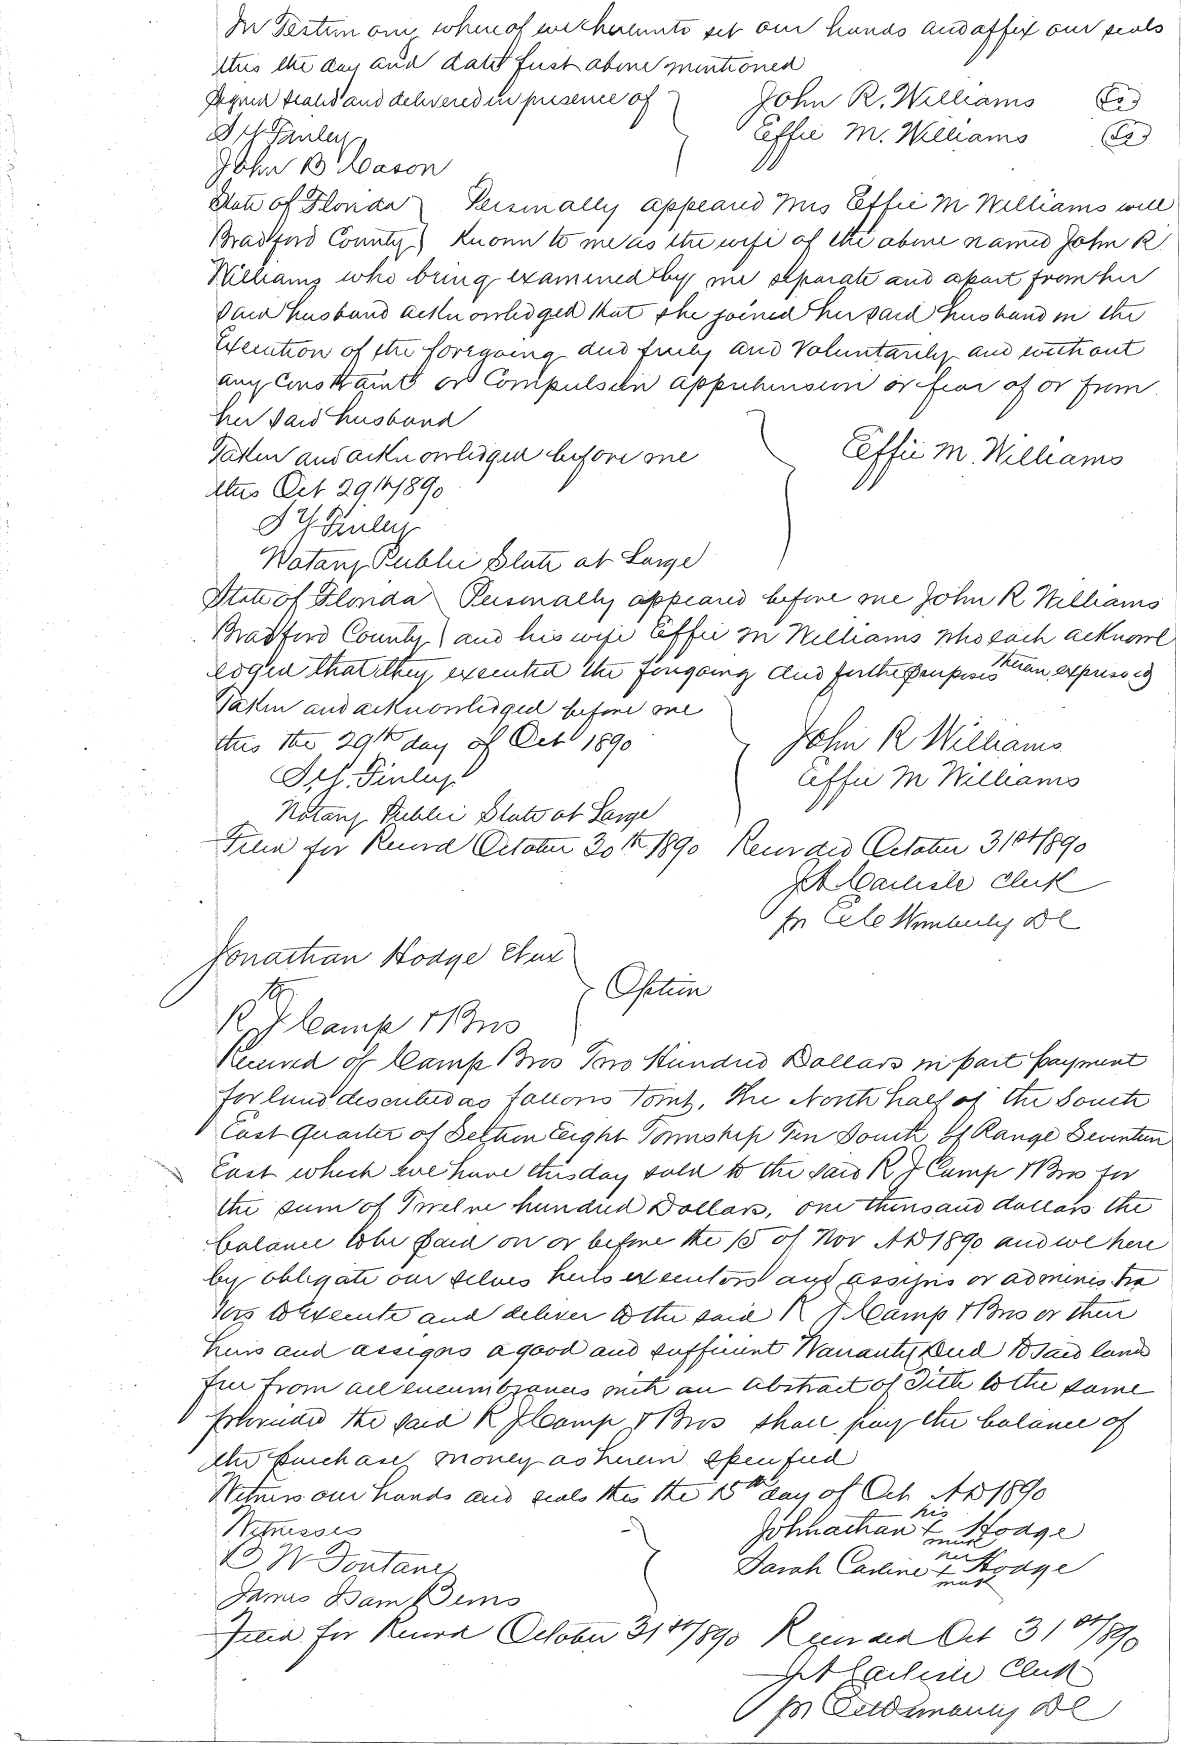 In Testimony whereof we hereunto set our hands and affix our seals
this the day and date first above mentioned
Signed sealed and delivered in presence of
John R. Williams (LS)
S Y Finley
Effie M. Williams (LS)
John B Cason
State of Florida } Personally appeared Mrs Effie M Williams well
Bradford County } known to me as the wife of the above named John R
Williams who being examined by me separate and apart from her
said husband acknowledged that she joined her said husband in the
Execution of the foregoing deed freely and voluntarily and without
any Constraint or Compulsion apprehension or fear of or from
her said husband
Taken and acknowledged before me
Effie M. Williams
this Oct 29th 1890
S Y Finley
Notary Public State at Large
State of Florida } Personally appeared before me John R Williams
Bradford County } and his wife Effie M Williams who each acknowl
edged that they executed the foregoing deed for the purposes therein expressed
Taken and acknowledged before me
this the 29th day of Oct 1890
John R Williams
S.Y. Finley
Effie M Williams
Notary Public State at Large
Filed for Record October 30th 1890 Recorded October 31st 1890
J A Carlisle Clerk
pr C C Wimberly DC
Jonathan Hodge et ux
to
Option
R J Camp & Bros
Received of Camp Bros Two Hundred Dollars in part payment
for land described as follows Towit, The North half of the South
East Quarter of Section Eight Township Ten South of Range Seventeen
East which we have this day sold to the said R J Camp & Bros for
the sum of Twelve hundred Dollars, one thousand dollars the
balance to be paid on or before the 15 of Nov AD 1890 and we here
by obligate our selves heirs executors and assigns or administra
tors to Execute and deliver to the said R J Camp & Bros or their
heirs and assigns a good and sufficient Warranty Deed to said land
free from all encumbrances with an abstract of Title to the same
provided the said R J Camp & Bros shall pay the balance of
the purchase money as herein specified
Witness our hands and seals this the 15th day of Oct AD 1890
Witnesses
Johnathan his x mark Hodge
B W Fontane
Sarah Carline her x mark Hodge
James Isam Bems
Filed for Record October 31st 1890 Recorded Oct 31st 1890
J A Carlisle Clerk
pr C C Wimberly DC